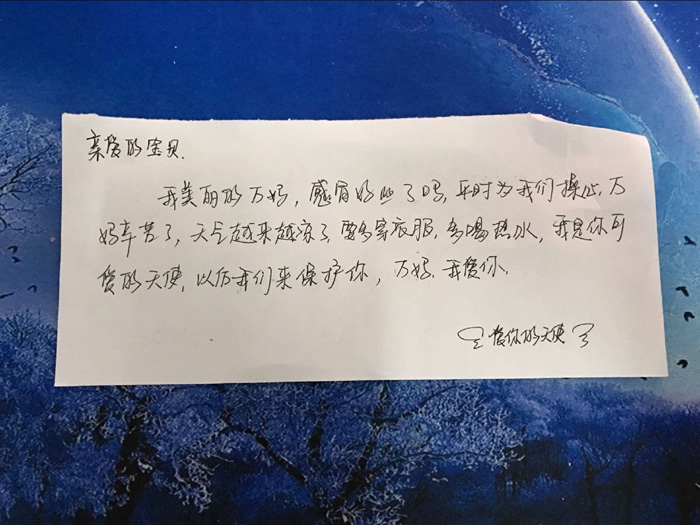 亲爱的宝贝.
我美丽的万妈，感冒好些了吗，平时为我们操心，万
妈辛苦了，天气越来越凉了，要多穿衣服，多喝热水，我是你可
爱的天使，以后我们来保护你，万妈.我爱你.
爱你的天使